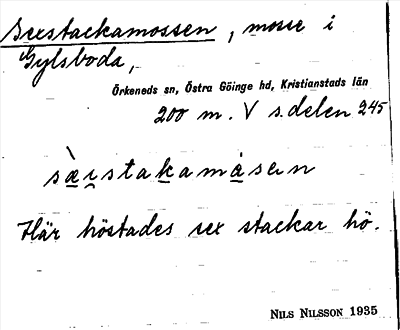 Sexstackamossen, mosse i
Gylsboda,
Örkeneds sn, Östra Göinge hd, Kristianstads län
200 m. V s.delen 245
Här höstades sex stackar hö.
NILS NILSSON 1935